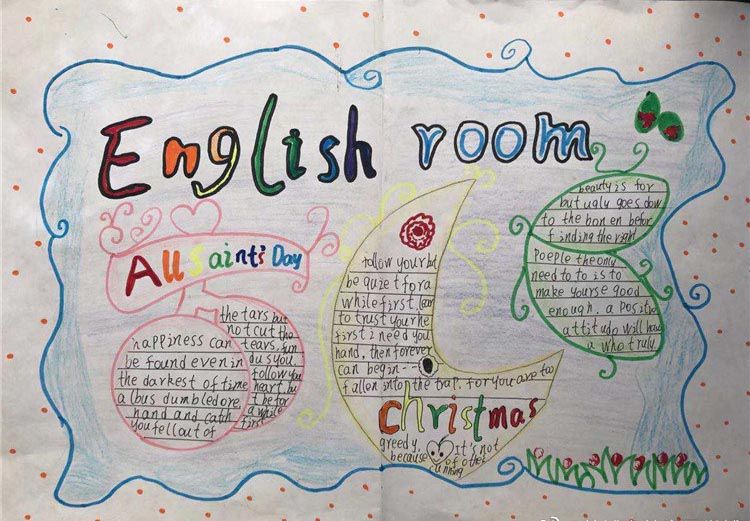 English room
All Saint's Day
happiness can
be found even in
the darkest of time
albus dumbledore
hand and cath
you fell out of
the tars but
not cut the
tears, fun
dus you
follow you
heart, but
t be for
a while
first
follow your but
be quiet for a
while first lear
to trust your he
first i need you
hand, then forever
can begin--
fallen into the trap. for you are too
christmas
greedy. It's not
because of other
cunning
beauty is for
but ugly goes dow
to the bon en befor
finding the right
Poeple the only
need to to is to
make yourse good
enough. a Positiv
attitudo will hav
a who truly